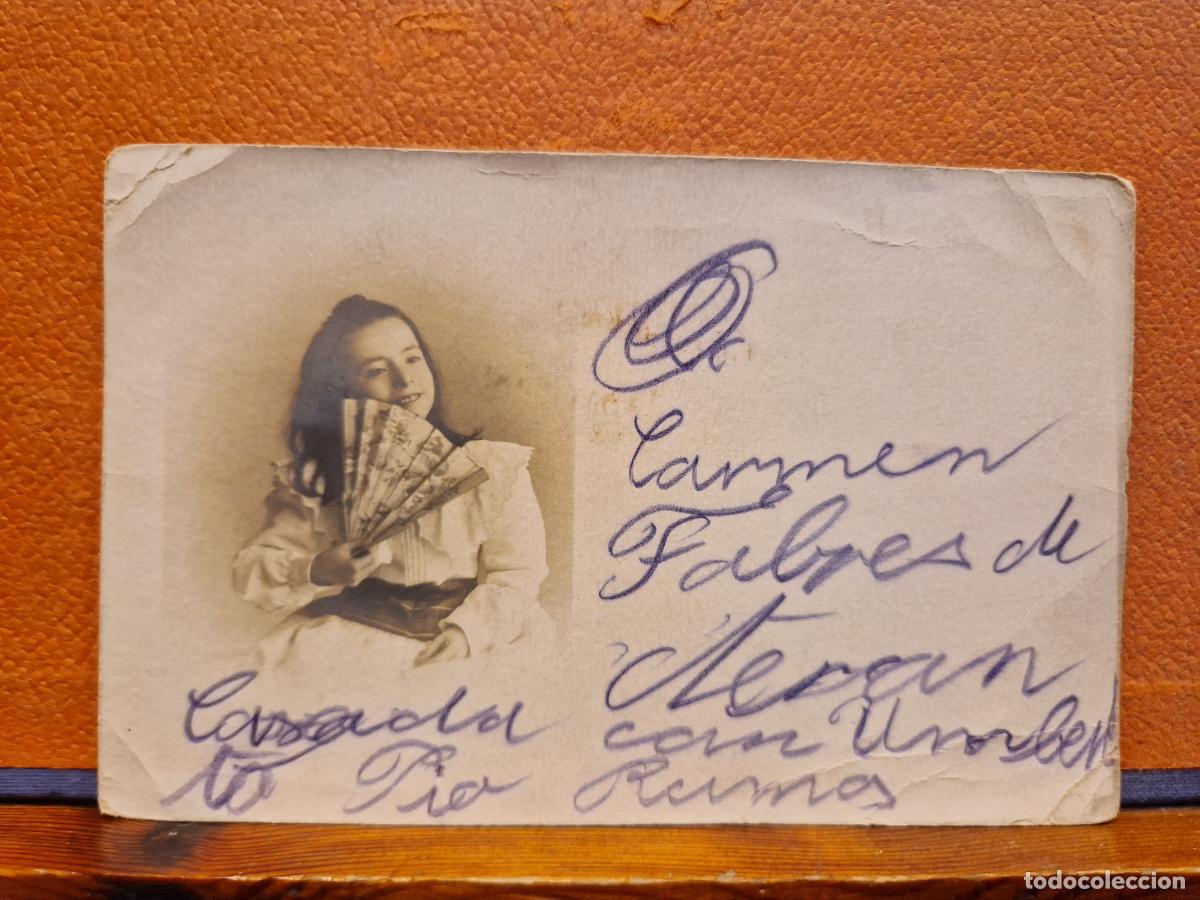 Carmen
Fabres de
Teran
Casada con Umbert
to Pio Ramos
todocoleccion